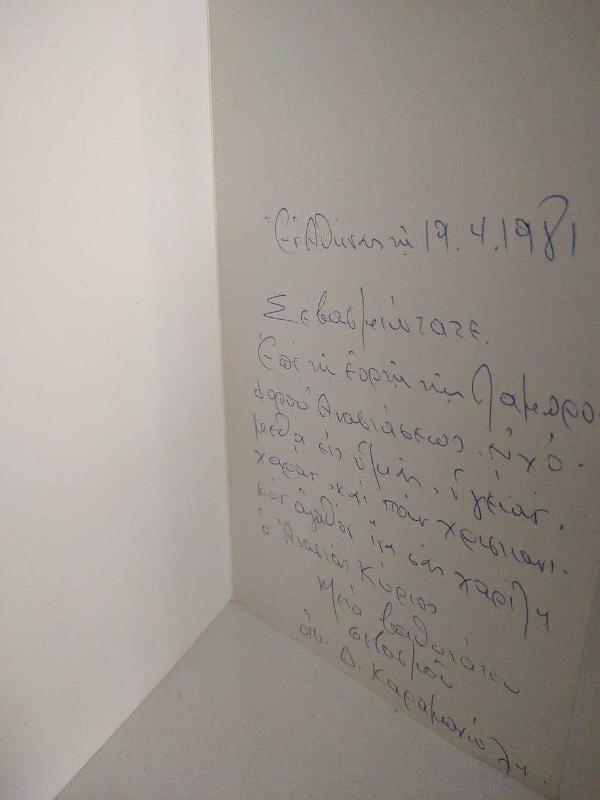 Ἐν Ἀθήναις τῇ 19.4.1981
Σεβασμιώτατε.
Ἐπὶ τῇ ἑορτῇ τῆς Λαμπρο-
φόρου Ἀναστάσεως ηὐχό-
μεθα εἰς ὑμᾶς, ὑγείαν,
χαράν, καὶ πᾶν χριστιανι-
κὸν ἀγαθὸν ἵνα σᾶς χαρίζῃ
ὁ Ἀναστὰς Κύριος
Μετὰ βαθυτάτου
σεβασμοῦ
Δ. Καραμανώλη